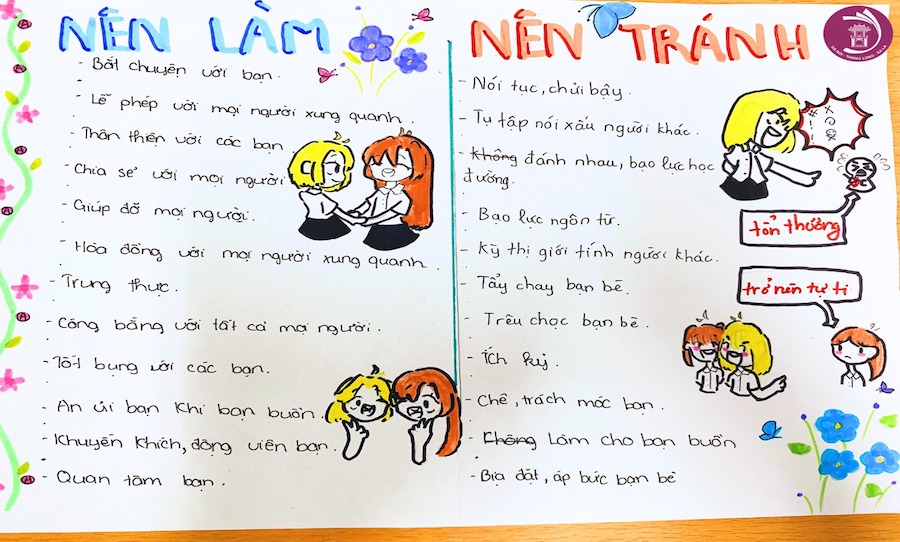 NÊN LÀM
- Bắt chuyện với bạn.
- Lễ phép với mọi người xung quanh.
- Thân thiện với các bạn
- Chia sẻ với mọi người
- Giúp đỡ mọi người.
- Hòa đồng với mọi người xung quanh.
- Trung thực.
- Công bằng với tất cả mọi người.
- Tốt bụng với các bạn.
- An ủi bạn khi bạn buồn.
- Khuyến khích, động viên bạn.
- Quan tâm bạn.
NÊN TRÁNH
- Nói tục, chửi bậy.
- Tụ tập nói xấu người khác.
- Không đánh nhau, bạo lực học
đường.
- Bạo lực ngôn từ.
- Kỳ thị giới tính người khác.
- Tẩy chay bạn bè.
- Trêu chọc bạn bè.
- Ích kỷ.
- Chê, trách móc bạn.
- Không Làm cho bạn buồn
- Bịa đặt, áp bức bạn bè
tổn thương
trở nên tự ti